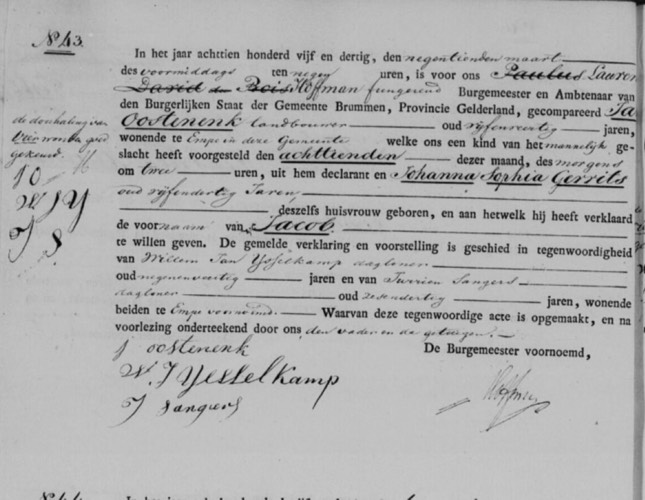 No. 43.
In het jaar achttien honderd vijf en dertig, den negentienden maart
des voormiddags ten negen uren, is voor ons Paulus Lauren
David de Bois Hoffman fungerend Burgemeester en Ambtenaar van
den Burgerlijken Staat der Gemeente Brummen, Provincie Gelderland, gecompareerd Ja
Oostenenk landbouwer oud vijfenveertig jaren,
wonende te Empe in deze Gemeente welke ons een kind van het mannelijk ge-
slacht heeft voorgesteld den achttienden dezer maand, des morgens
om twee uren, uit hem declarant en Johanna Sophia Gerrits
oud vijfendertig Jaren
deszelfs huisvrouw geboren, en aan hetwelk hij heeft verklaard
de voornaam van Jacob
te willen geven. De gemelde verklaring en voorstelling is geschied in tegenwoordigheid
van Willem Jan IJsselkamp daglooner
oud negenenveertig jaren en van Jurrien Sangers
daglooner oud zesendertig jaren, wonende
beiden te Empe voornoemd. Waarvan deze tegenwoordige acte is opgemaakt, en na
voorlezing onderteekend door ons den vader en de getuigen.
De Burgemeester voornoemd,
J oostenenk
W. J Yesselkamp
J Sangers
Hoffman
de doorhaling van
vier woorden goed
gekeurd.
H
J O
W J Y
J S